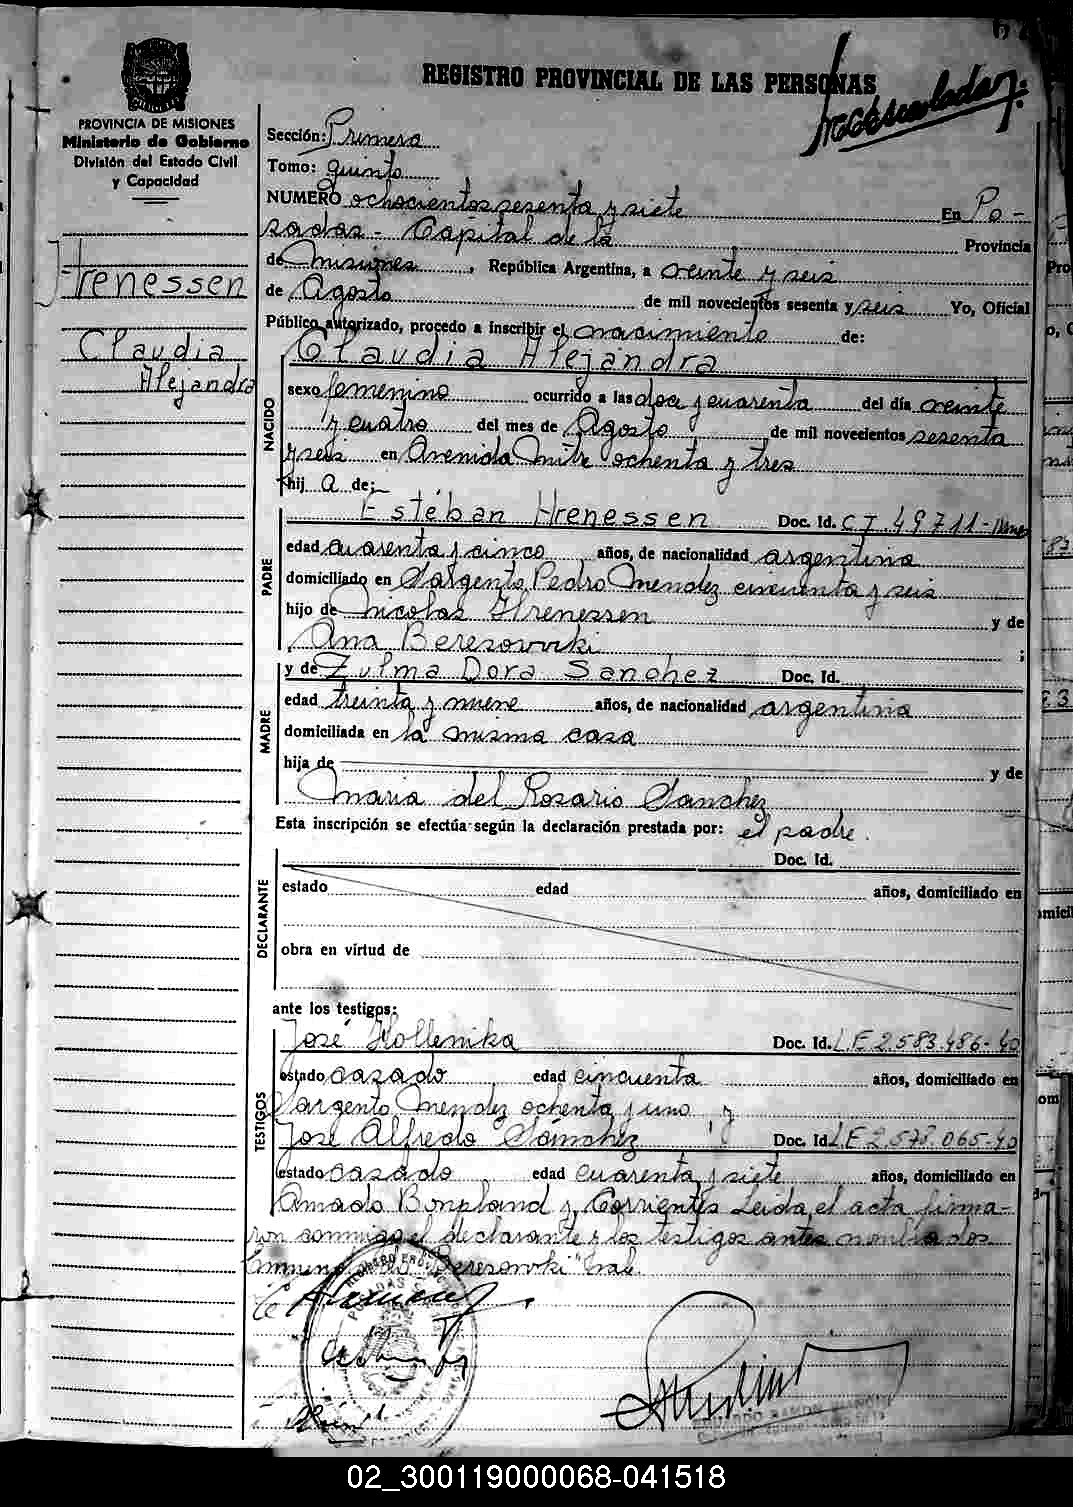 REGISTRO PROVINCIAL DE LAS PERSONAS
PROVINCIA DE MISIONES
Ministerio de Gobierno
División del Estado Civil
y Capacidad
Hrenessen
Claudia
Alejandra
Sección: Primera
Tomo: quinto
NUMERO ochocientos sesenta y siete En Po-
sadas - Capital de la Provincia
de Misiones, República Argentina, a veinte y seis
de Agosto de mil novecientos sesenta y seis Yo, Oficial
Público autorizado, procedo a inscribir el nacimiento de:
NACIDO
Claudia Alejandra
sexo femenino ocurrido a las doce y cuarenta del día veinte
y cuatro del mes de Agosto de mil novecientos sesenta
y seis en Avenida Mitre ochenta y tres
hij a de:
PADRE
Estéban Hrenessen Doc. Id. C I. 49711-
edad cuarenta y cinco años, de nacionalidad argentina
domiciliado en Sargento Pedro Mendez cincuenta y seis
hijo de Nicolas Hrenessen y de
Ana Beresowski ;
MADRE
y de Zulma Dora Sanchez Doc. Id.
edad treinta y nueve años, de nacionalidad argentina
domiciliada en la misma casa
hija de y de
Maria del Rosario Sanchez
Esta inscripción se efectúa según la declaración prestada por: el padre.
DECLARANTE
Doc. Id.
estado edad años, domiciliado en
obra en virtud de
ante los testigos:
TESTIGOS
José Hollenika Doc. Id. L.E 2.583.486-40
estado casado edad cincuenta años, domiciliado en
Sargento Mendez ochenta y uno y
José Alfredo Sánchez Doc. Id. L E 2.578.065-40
estado casado edad cuarenta y siete años, domiciliado en
Amado Bonpland y Corrientes Leida el acta firma-
ron conmigo el declarante y los testigos antes nombrados
"Beresowski" Vale.
02_300119000068-041518